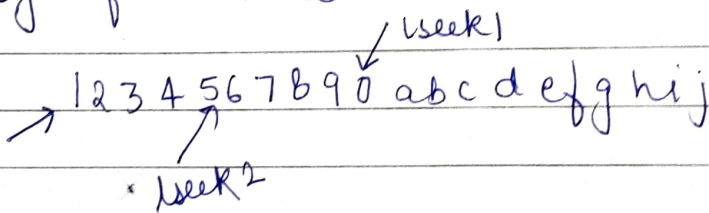 lseek1
1 2 3 4 5 6 7 8 9 0 a b c d e f g h i j
lseek2